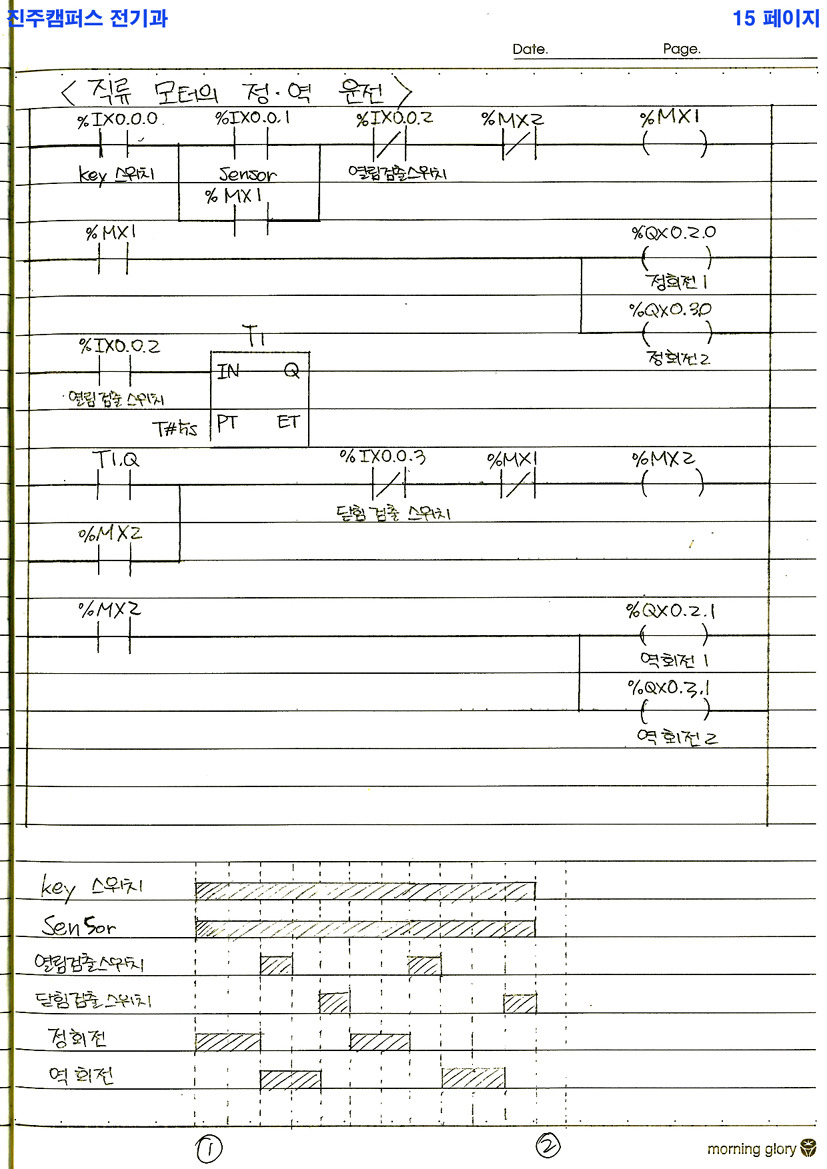 진주캠퍼스 전기과 15 페이지
Date. Page.
< 직류 모터의 정·역 운전 >
%IX0.0.0 %IX0.0.1 %IX0.0.2 %MX2 %MX1
key 스위치 Sensor 열림검출스위치
%MX1
%MX1 %QX0.2.0
정회전 1
%QX0.3.0
정회전 2
%IX0.0.2 T1
IN Q
열림검출스위치
T#5s PT ET
T1.Q %IX0.0.3 %MX1 %MX2
닫힘 검출 스위치
%MX2
%MX2 %QX0.2.1
역회전 1
%QX0.3.1
역회전 2
key 스위치
Sensor
열림검출스위치
닫힘검출스위치
정회전
역회전
① ②
morning glory